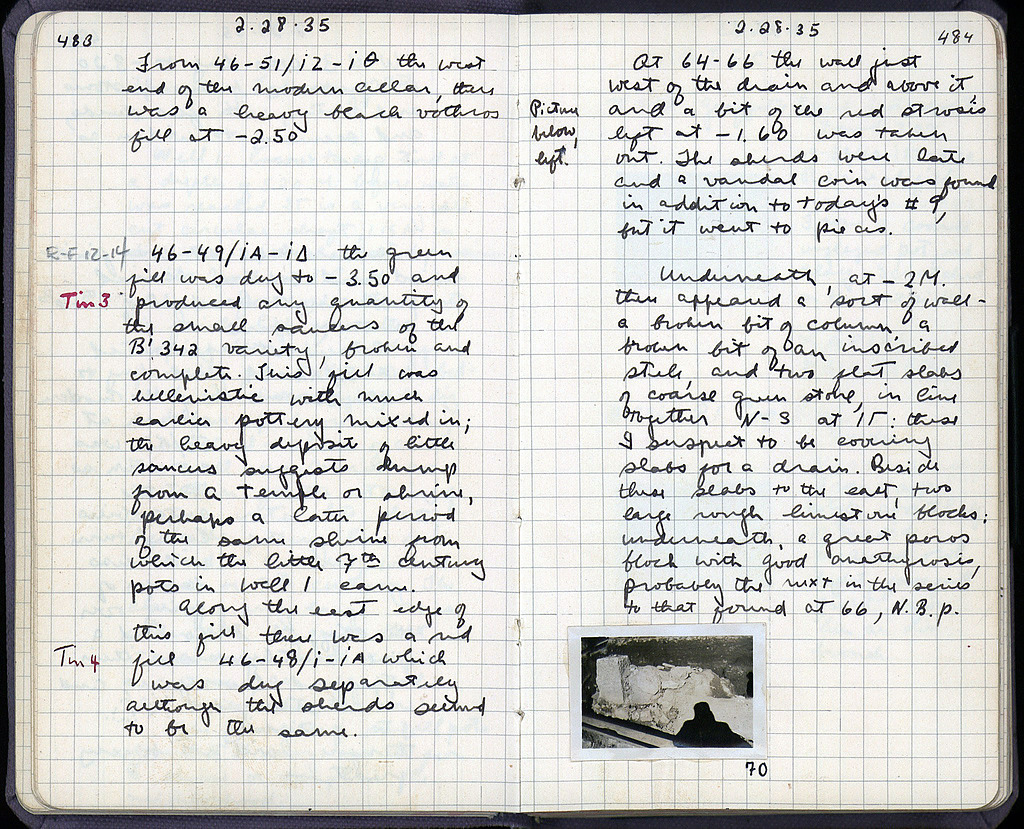 483
2.28.35
From 46-51/ΙΖ-ΙΘ the west
end of the modern cellar, there
was a heavy black bothros
fill at -2.50
E-F 12-14
46-49/ΙΑ-ΙΔ the green
fill was dug to -3.50 and
Tin 3
produced any quantity of
the small saucers of the
B' 342 variety, broken and
complete. This fill was
hellenistic with much
earlier pottery mixed in;
the heavy deposit of little
saucers suggests dump
from a temple or shrine,
perhaps a later period
of the same shrine from
which the little 7th century
pots in Well 1 came.
Along the east edge of
this fill there was a red
Tin 4
fill 46-48/Ι-ΙΑ which
was dug separately
although the sherds seemed
to be the same.
2.28.35
484
At 64-66 the wall just
west of the drain and above it,
Picture
below,
left.
and a bit of the red strosis
left at -1.60 was taken
out. The sherds were late
and a vandal coin was found
in addition to today's #9,
but it went to pieces.
Underneath, at -2M.
there appeared a sort of wall-
a broken bit of column, a
broken bit of an inscribed
stele, and two flat slabs
of coarse green stone, in line
together N-S at ΙΓ: these
I suspect to be covering
slabs for a drain. Beside
these slabs to the east, two
large rough limestone blocks;
underneath, a great poros
block with good anathyrosis,
probably the next in the series
to that found at 66, N.B.p.
70